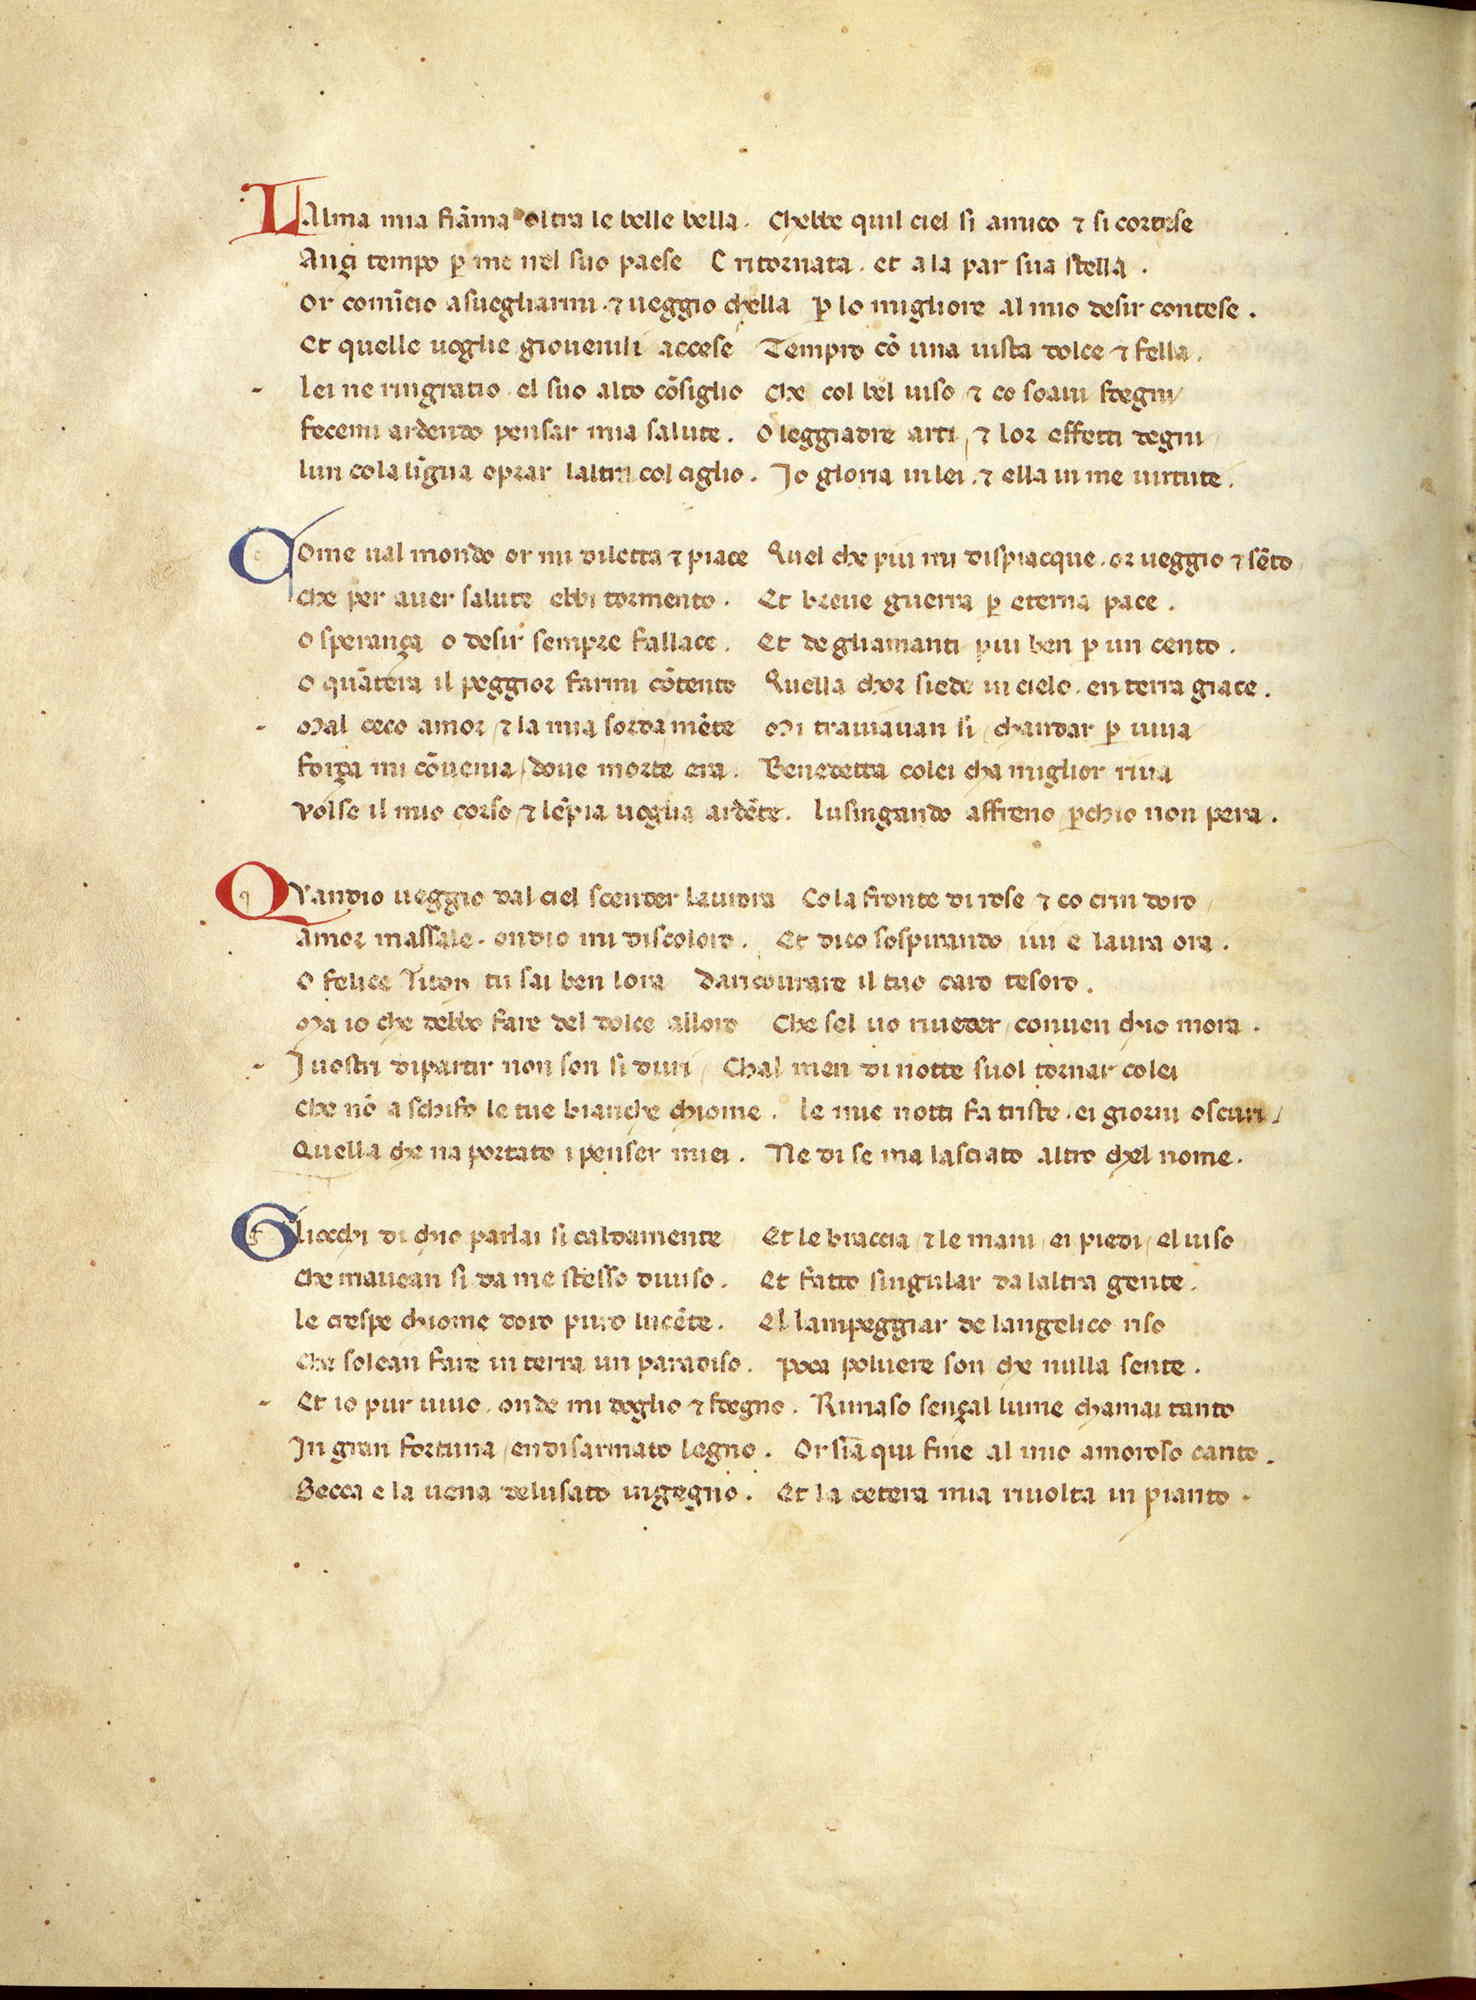 LAlma mia fiãma oltra le belle bella. Chebbe quil ciel si amico ⁊ si cortese
Anzi tempo ꝑ me nel suo paese E ritornata. et a la par sua stella.
Or comĩcio asuegliarmi. ⁊ ueggio chella ꝑ lo migliore al mio desir contese.
Et quelle uoglie giouenili accese Tempro cõ una uista dolce ⁊ fella.
Lei ne ringratio. el suo alto cõsiglio Che col bel uiso ⁊ co soaui sdegni/
fecemi ardendo pensar mia salute. O leggiadre arti/ ⁊ lor effetti degni
lun co la lĩgua oprar laltri col ciglio. Io gloria in lei. ⁊ ella in me uirtute.
COme ual mondo or mi diletta ⁊ piace Quel che piu mi dispiacque. or ueggio ⁊ sẽto
che per auer salute ebbi tormento. Et breue guerra ꝑ eterna pace.
O sperança o desir sempre fallace. Et de gliamanti piu ben ꝑ un cento.
O quãtera il peggior farmi cõtento Quella chor siede in cielo. en terra giace.
Mal ceco amor/ ⁊ la mia sorda mẽte Mi trauiauan si/ chandar ꝑ uiua
força mi cõuenia/ doue morte era. Benedetta colei cha miglior riua
Volse il mio corso/ ⁊ lẽpia uoglia ardẽte. lusingando affreno ꝑchio non pera.
QVandio ueggio dal ciel scender laurora Co la fronte di rose ⁊ co crin doro/
Amor massale. ondio mi discoloro. Et dico sospirando iui e laura ora.
O felice Titon tu sai ben lora Dari courare il tuo caro tesoro.
Ma io che debbo fare del dolce alloro Che sel uo riueder/ conuen chio mora.
I uostri dipartir non son si duri/ Chal men di notte suol tornar colei
Che nõ a schifo le tue bianche chiome. le mie notti fa triste. ei giorni oscuri/
Quella che na portato i penser miei. Ne di se ma lasciato altro chel nome.
Gliocchi di chio parlai si caldamente Et le braccia/ ⁊ le mani/ ei piedi/ el uiso
che mauean si da me stesso diuiso. Et fatto singular da laltra gente.
le crespe chiome doro puro lucẽte. El lampeggiar de langelico riso
Che solean fare in terra un paradiso. Poca poluere son che nulla sente.
Et io pur uiuo. onde mi doglio ⁊ sdegno. Rimaso sençal lume chamai tanto
In gran fortuna/ en disarmato legno. Or sia qui fine al mio amoroso canto.
Secca e la uena de lusato ingegno. Et la cetera mia riuolta in pianto.